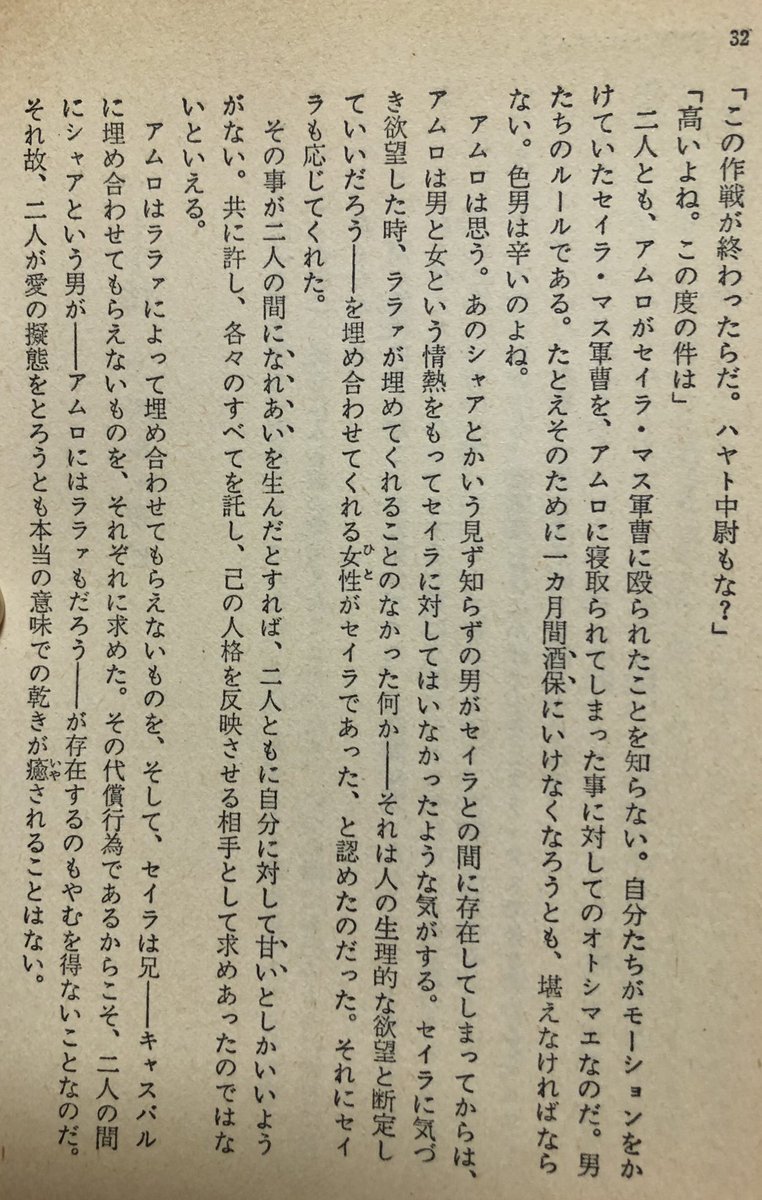 32
「この作戦が終わったらだ。ハヤト中尉もな?」
「高いよね。この度の件は」
二人とも、アムロがセイラ・マス軍曹に殴られたことを知らない。自分たちがモーションをか
けていたセイラ・マス軍曹を、アムロに寝取られてしまった事に対してのオトシマエなのだ。男
たちのルールである。たとえそのために一カ月間酒保にいけなくなろうとも、堪えなければなら
ない。色男は辛いのよね。
アムロは思う。あのシャアとかいう見ず知らずの男がセイラとの間に存在してしまってからは、
アムロは男と女という情熱をもってセイラに対してはいなかったような気がする。セイラに気づ
き欲望した時、ララァが埋めてくれることのなかった何か——それは人の生理的な欲望と断定し
ていいだろう——を埋め合わせてくれる女性がセイラであった、と認めたのだった。それにセイ
ラも応じてくれた。
その事が二人の間になれあいを生んだとすれば、二人ともに自分に対して甘いとしかいいよう
がない。共に許し、各々のすべてを託し、己の人格を反映させる相手として求めあったのではな
いといえる。
アムロはララァによって埋め合わせてもらえないものを、そして、セイラは兄——キャスバル
に埋め合わせてもらえないものを、それぞれに求めた。その代償行為であるからこそ、二人の間
にシャアという男が——アムロにはララァもだろう——が存在するのもやむを得ないことなのだ。
それ故、二人が愛の擬態をとろうとも本当の意味での乾きが癒されることはない。